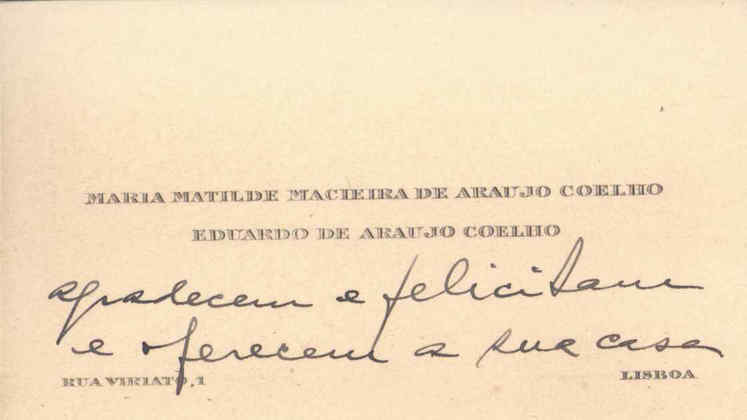 MARIA MATILDE MACIEIRA DE ARAUJO COELHO
EDUARDO DE ARAUJO COELHO
agradecem e felicitam
e oferecem a sua casa
RUA VIRIATO, 1 LISBOA